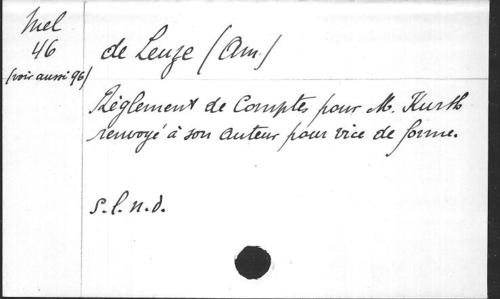 Mel
46
(voir aussi 96)
de Leuze (Am.)
Règlement de Comptes pour M. Kurth
renvoyé à son auteur pour vice de forme.
s.l.n.d.